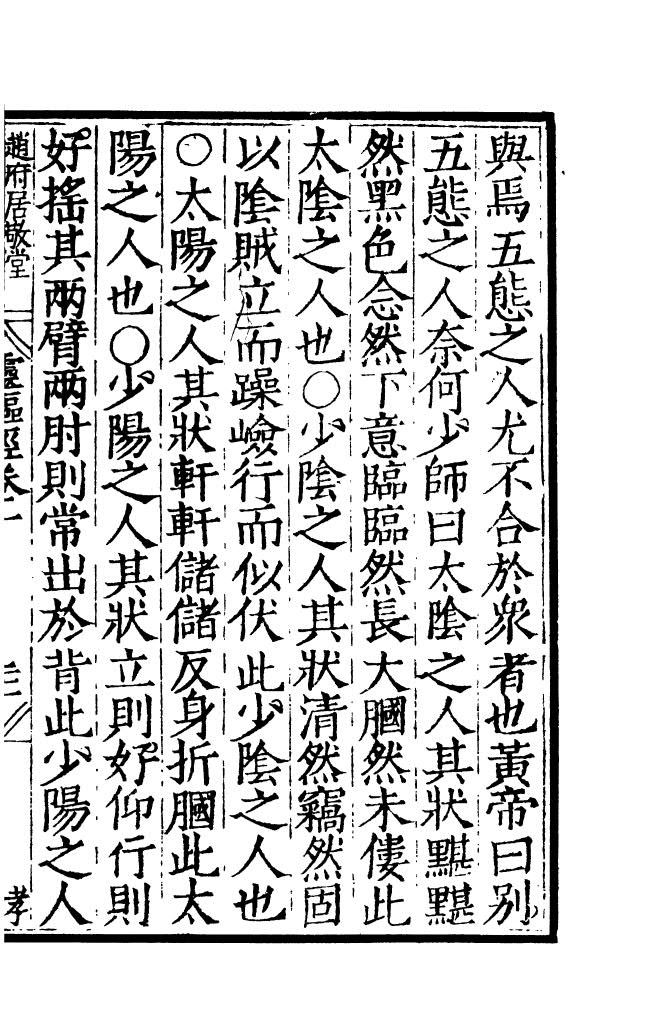 與焉五態之人尤不合於衆者也黃帝曰別
五態之人奈何少師曰太陰之人其狀黮黮
然黑色念然下意臨臨然長大膕然未僂此
太陰之人也○少陰之人其狀清然竊然固
以陰賊立而躁嶮行而似伏此少陰之人也
○太陽之人其狀軒軒儲儲反身折膕此太
陽之人也○少陽之人其狀立則好仰行則
好搖其兩臂兩肘則常出於背此少陽之人
趙府居敬堂 靈樞經卷十 孝